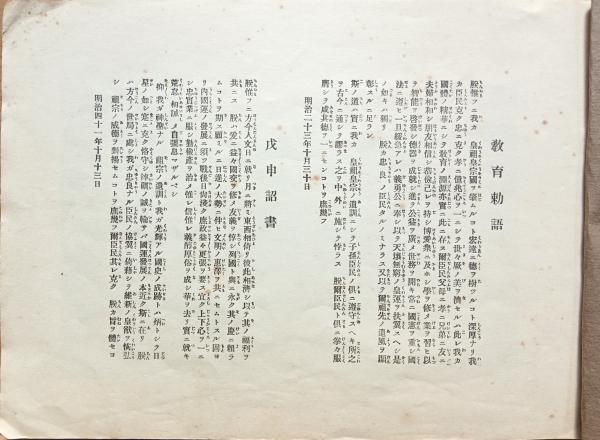 教育勅語
朕惟フニ我カ　皇祖皇宗國ヲ肇ムルコト宏遠ニ德ヲ樹ツルコト深厚ナリ我
カ臣民克ク忠ニ克ク孝ニ億兆心ヲ一ニシテ世々厥ノ美ヲ濟セルハ此レ我カ
國體ノ精華ニシテ敎育ノ淵源亦實ニ此ニ存ス爾臣民父母ニ孝ニ兄弟ニ友ニ
夫婦相和シ朋友相信シ恭儉己レヲ持シ博愛衆ニ及ホシ學ヲ修メ業ヲ習ヒ以
テ智能ヲ啓發シ德器ヲ成就シ進テ公益ヲ廣メ世務ヲ開キ常ニ國憲ヲ重シ國
法ニ遵ヒ一旦緩急アレハ義勇公ニ奉シ以テ天壤無窮ノ皇運ヲ扶翼スヘシ是
ノ如キハ獨リ　朕カ忠良ノ臣民タルノミナラス又以テ爾祖先ノ遺風ヲ顯
彰スルニ足ラン
斯ノ道ハ實ニ我カ　皇祖皇宗ノ遺訓ニシテ子孫臣民ノ俱ニ遵守スヘキ所之
ヲ古今ニ通シテ謬ラス之ヲ中外ニ施シテ悖ラス　朕爾臣民ト俱ニ拳々服
膺シテ咸其德ヲ一ニセンコトヲ庶幾フ
明治二十三年十月三十日
戊申詔書
朕惟フニ方今人文日ニ就リ月ニ將ミ東西相倚リ彼此相濟シ以テ其ノ福利ヲ
共ニス　朕ハ爰ニ益々國交ヲ修メ友義ヲ惇シ列國ト與ニ永ク其ノ慶ニ賴ラ
ムコトヲ期ス顧ミルニ日進ノ大勢ニ伴ヒ文明ノ惠澤ヲ共ニセムトスル固ヨ
リ內國運ノ發展ニ須ツ戰後日尙淺ク庶政益々更張ヲ要ス宜ク上下心ヲ一ニ
シ忠實業ニ服シ勤儉產ヲ治メ惟レ信惟レ義醇厚俗ヲ成シ華ヲ去リ實ニ就キ
荒怠相誡メ自彊息マザルベシ
抑〻我ガ神聖ナル　祖宗ノ遺訓ト我ガ光輝アル國史ノ成跡トハ炳トシテ日
星ノ如シ寔ニ克ク恪守シ淬礪ノ誠ヲ輸サバ國運發展ノ本近ク斯ニ在リ　朕
ハ方今ノ世局ニ處シ我ガ忠良ナル臣民ノ協翼ニ倚藉シテ維新ノ皇猷ヲ恢弘
シ　祖宗ノ威德ヲ對揚セムコトヲ庶幾フ爾臣民其レ克ク　朕カ旨ヲ體セヨ
明治四十一年十月十三日